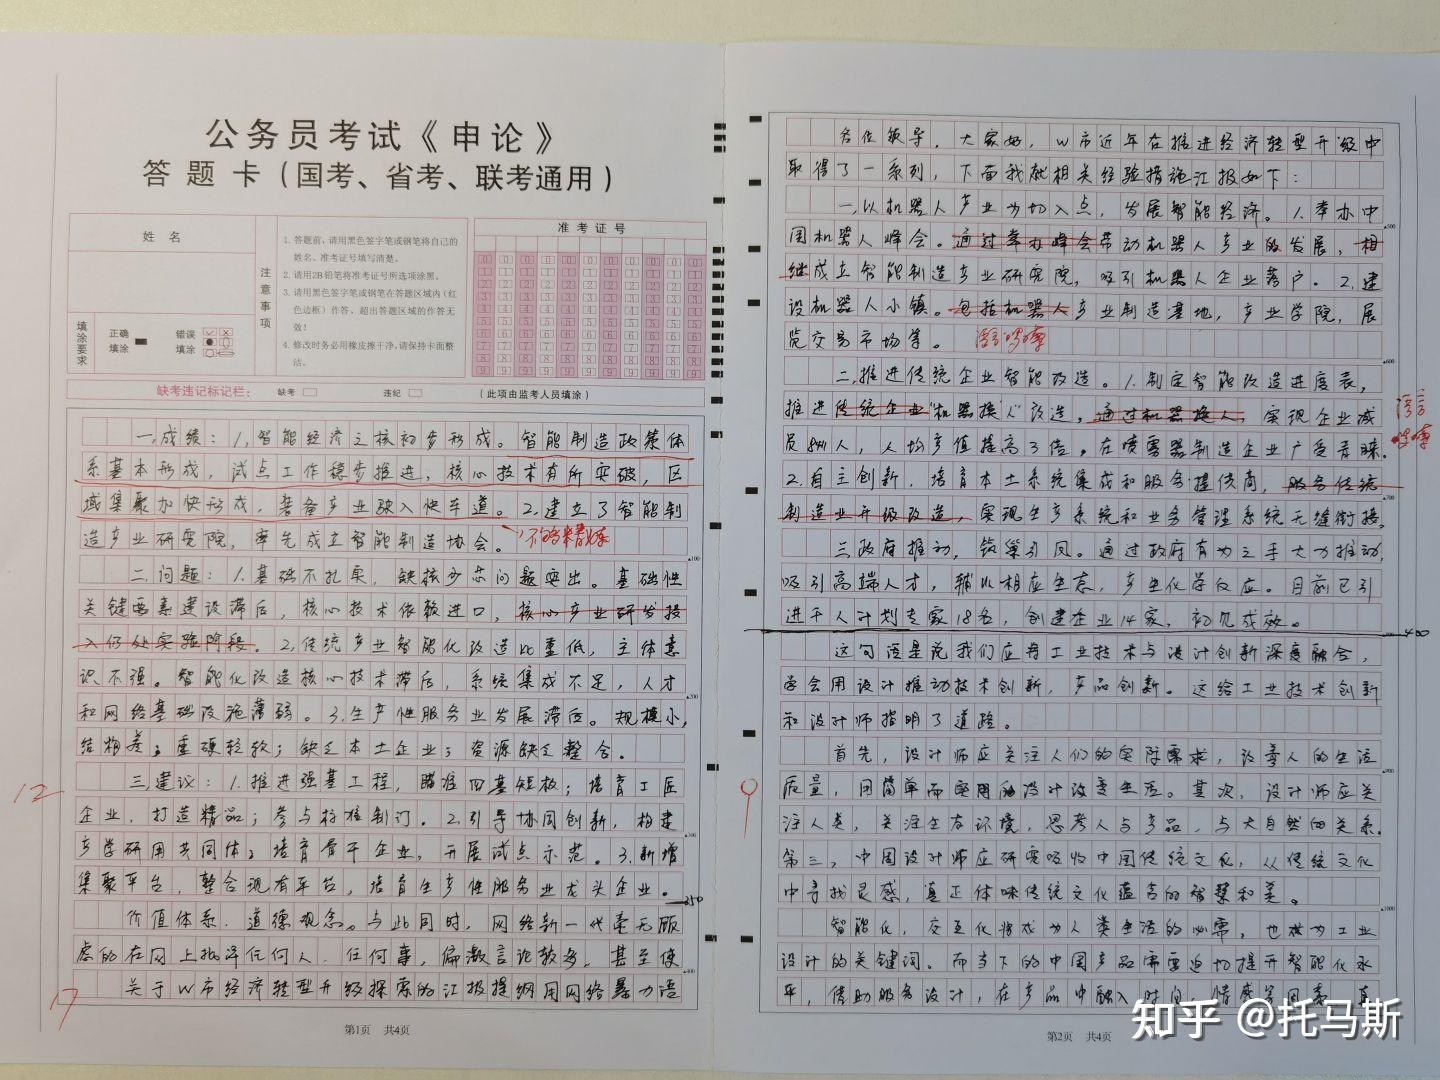 公务员考试《申论》
答题卡(国考、省考、联考通用)
姓名
注意事项
1.答题前,请用黑色签字笔或钢笔将自己的
姓名、准考证号填写清楚。
2.请用2B铅笔将准考证号所选项涂黑。
3.请用黑色签字笔或钢笔在答题区域内(红
色边框)作答,超出答题区域的作答无
效!
4.修改时务必用橡皮擦干净,请保持卡面整
洁。
填涂要求
正确填涂
错误填涂
准考证号
缺考违记标记栏:
缺考
违纪
(此项由监考人员填涂)
一、成绩:1.智能经济之核初步形成。智能制造政策体
系基本形成,试点工作稳步推进,核心技术有所突破,区
域集聚加快形成,装备产业驶入快车道。2.建立了智能制
造产业研究院,率先成立智能制造协会。
二.问题:1.基础不扎实,缺核少芯问题突出。基础性
关键要素建设滞后,核心技术依赖进口,核心产业研发投
入仍处实验阶段。2.传统产业智能化改造比重低,主体意
识不强。智能化改造核心技术滞后,系统集成不足,人才
和网络基础设施薄弱。3.生产性服务业发展滞后。规模小,
结构差;重硬轻软;缺乏本土企业;资源缺乏整合。
三.建议:1.推进强基工程,瞄准四基短板;培育工匠
企业,打造精品;参与标准制订。2.引导协同创新,构建
产学研用共同体;培育骨干企业,开展试点示范。3.新增
集聚平台,整合现有平台,培育生产性服务业龙头企业。
350
价值体系.道德观念。与此同时,网络新一代毫无顾
虑的在网上批评任何人.任何事,偏激言论较多,甚至使
关于W市经济转型升级探索的汇报提纲用网络暴力语
12
17
第1页 共4页
各位领导,大家好,W市近年在推进经济转型升级中
取得了一系列,下面我就相关经验措施汇报如下:
一.以机器人产业为切入点,发展智能经济。1.举办中
国机器人峰会。通过举办峰会带动机器人产业的发展,相
继成立智能制造产业研究院,吸引机器人企业落户。2.建
设机器人小镇。包括机器人产业制造基地,产业学院,展
览交易市场等。
二.推进传统企业智能改造。1.制定智能改造进度表,
推进传统企业"机器换人"改造,通过机器换人,实现企业减
员 人,人均产值提高3倍。在喷雾器制造企业广受青睐。
2.自主创新,培育本土系统集成和服务提供商,服务传统
制造业升级改造,实现生产系统和业务管理系统无缝衔接。
三.政府推动,筑巢引凤。通过政府有为之手大力推动,
吸引高端人才,辅以相应生态,产生化学反应。目前已引
进千人计划专家18名,创建企业14家,初见成效。
400
这句话是说我们应将工业技术与设计创新深度融合,
学会用设计推动技术创新,产品创新。这给工业技术创新
和设计师指明了道路。
首先,设计师应关注人们的实际需求,改善人的生活
质量,用简单而实用的设计改变生活。其次,设计师应关
注人类,关注生存环境,思考人与产品,与大自然的关系。
第三,中国设计师应研究吸收中国传统文化,从传统文化
中寻找灵感,真正体味传统文化蕴含的智慧和美。
智能化,交互化将成为人类生活的必需,也成为工业
设计的关键词。而当下的中国产品需要迫切提升智能化水
平,借助服务设计,在产品中融入时间,情感等因素,真
第2页 共4页
知乎 @托马斯